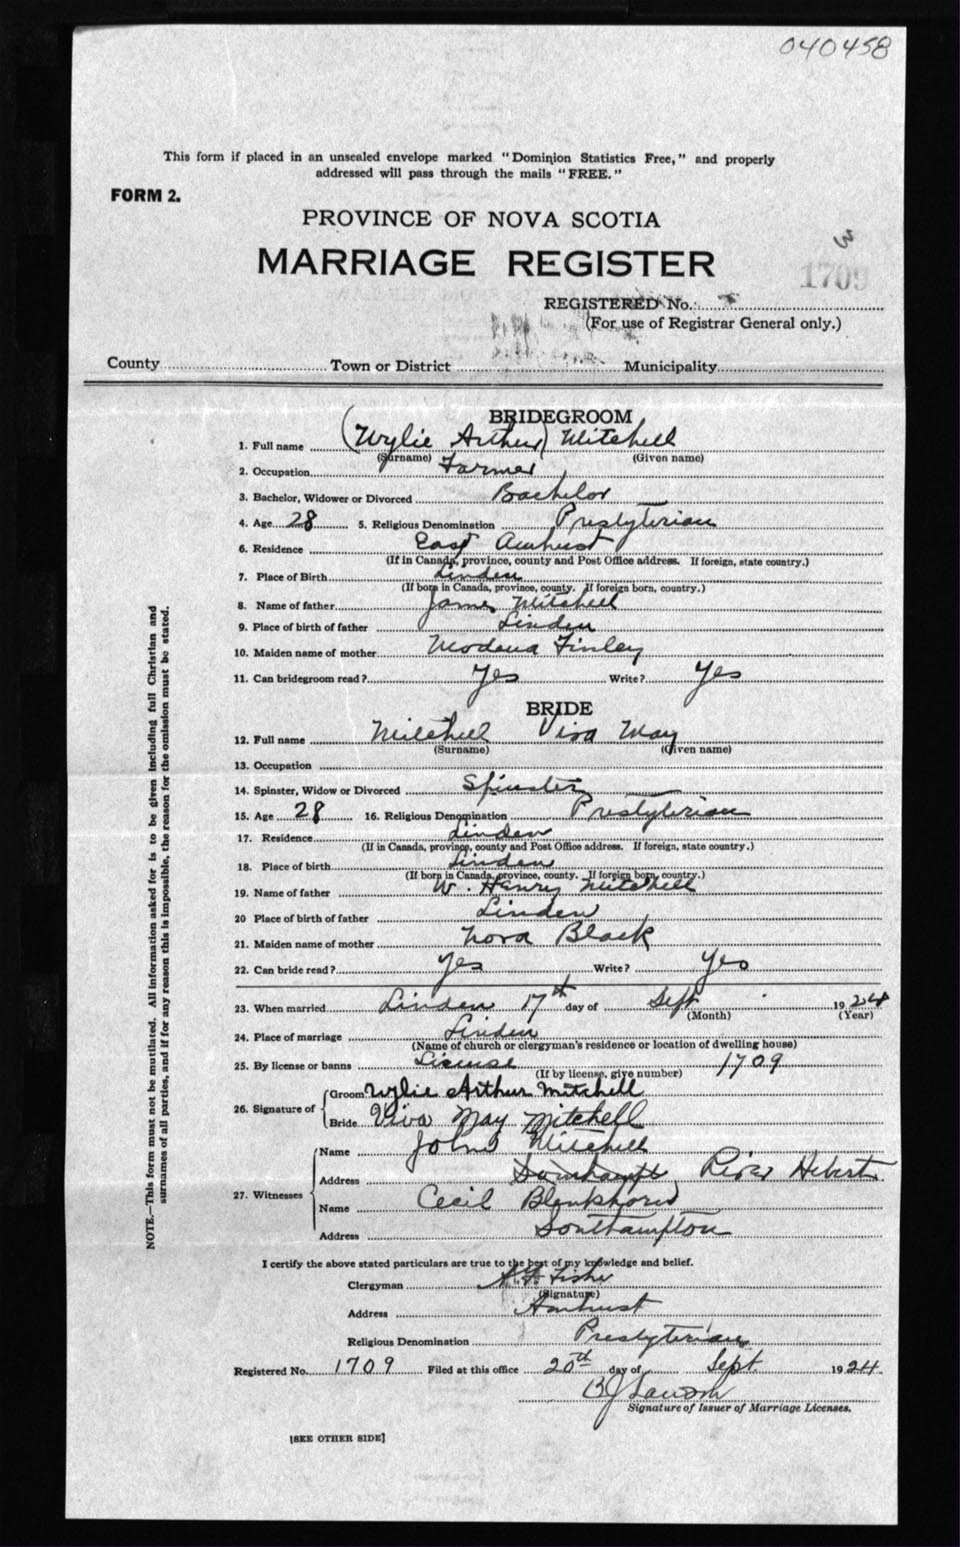 040458
This form if placed in an unsealed envelope marked "Dominion Statistics Free," and properly
addressed will pass through the mails "FREE."
FORM 2.
PROVINCE OF NOVA SCOTIA
MARRIAGE REGISTER
3
1709
REGISTERED No.
(For use of Registrar General only.)
County Town or District Municipality
BRIDEGROOM
1. Full name (Wylie Arthur) Mitchell
(Surname) (Given name)
2. Occupation Farmer
3. Bachelor, Widower or Divorced Bachelor
4. Age 28 5. Religious Denomination Presbyterian
6. Residence East Amherst
(If in Canada, province, county and Post Office address. If foreign, state country.)
7. Place of Birth Linden
(If born in Canada, province, county. If foreign born, country.)
8. Name of father James Mitchell
9. Place of birth of father Linden
10. Maiden name of mother Modena Finley
11. Can bridegroom read? Yes Write? Yes
BRIDE
12. Full name Mitchell Viva May
(Surname) (Given name)
13. Occupation
14. Spinster, Widow or Divorced Spinster
15. Age 28 16. Religious Denomination Presbyterian
17. Residence Linden
(If in Canada, province, county and Post Office address. If foreign, state country.)
18. Place of birth Linden
(If born in Canada, province, county. If foreign born, country.)
19. Name of father W. Henry Mitchell
20 Place of birth of father Linden
21. Maiden name of mother Nora Black
22. Can bride read? Yes Write? Yes
23. When married Linden 17th day of Sept 1924
(Month) (Year)
24. Place of marriage Linden
(Name of church or clergyman's residence or location of dwelling house)
25. By license or banns License 1709
(If by license, give number)
26. Signature of Groom Wylie Arthur Mitchell
Bride Viva May Mitchell
27. Witnesses Name John Mitchell
Address River Hebert
Name Cecil Blenkhorn
Address Southampton
I certify the above stated particulars are true to the best of my knowledge and belief.
Clergyman Fisher
(Signature)
Address Amherst
Religious Denomination Presbyterian
Registered No. 1709 Filed at this office 20th day of Sept 1924
Signature of Issuer of Marriage Licenses.
[SEE OTHER SIDE]
NOTE.—This form must not be mutilated. All information asked for is to be given including full Christian and
surnames of all parties, and if for any reason this is impossible, the reason for the omission must be stated.